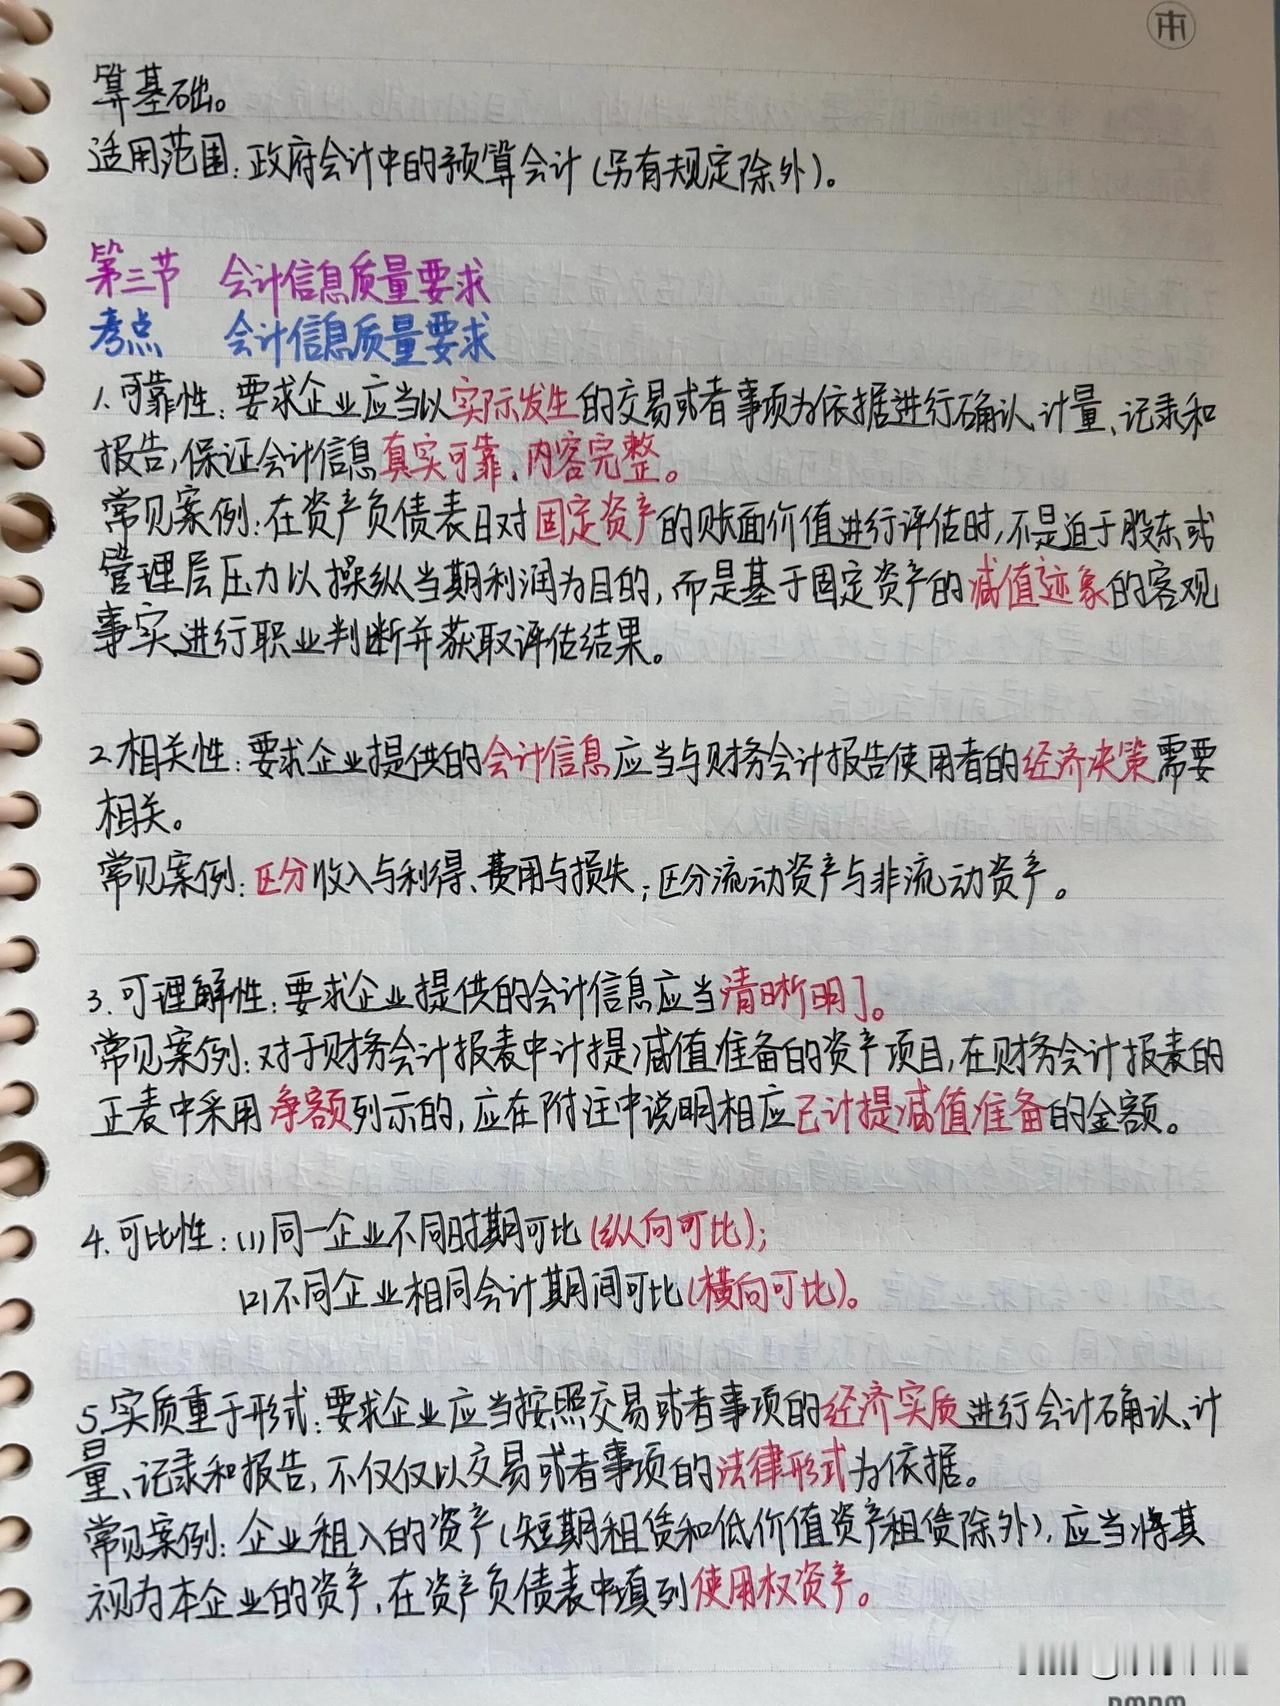 算基础。
适用范围：政府会计中的预算会计（另有规定除外）。
第三节 会计信息质量要求
考点 会计信息质量要求
1.可靠性：要求企业应当以实际发生的交易或者事项为依据进行确认、计量、记录和
报告，保证会计信息真实可靠、内容完整。
常见案例：在资产负债表日对固定资产的账面价值进行评估时，不是迫于股东或
管理层压力以操纵当期利润为目的，而是基于固定资产的减值迹象的客观
事实进行职业判断并获取评估结果。
2.相关性：要求企业提供的会计信息应当与财务会计报告使用者的经济决策需要
相关。
常见案例：区分收入与利得、费用与损失；区分流动资产与非流动资产。
3.可理解性：要求企业提供的会计信息应当清晰明了。
常见案例：对于财务会计报表中计提减值准备的资产项目，在财务会计报表的
正表中采用净额列示的，应在附注中说明相应已计提减值准备的金额。
4.可比性：(1)同一企业不同时期可比（纵向可比）；
(2)不同企业相同会计期间可比（横向可比）。
5.实质重于形式：要求企业应当按照交易或者事项的经济实质进行会计确认、计
量、记录和报告，不仅仅以交易或者事项的法律形式为依据。
常见案例：企业租入的资产（短期租赁和低价值资产租赁除外），应当将其
视为本企业的资产，在资产负债表中填列使用权资产。